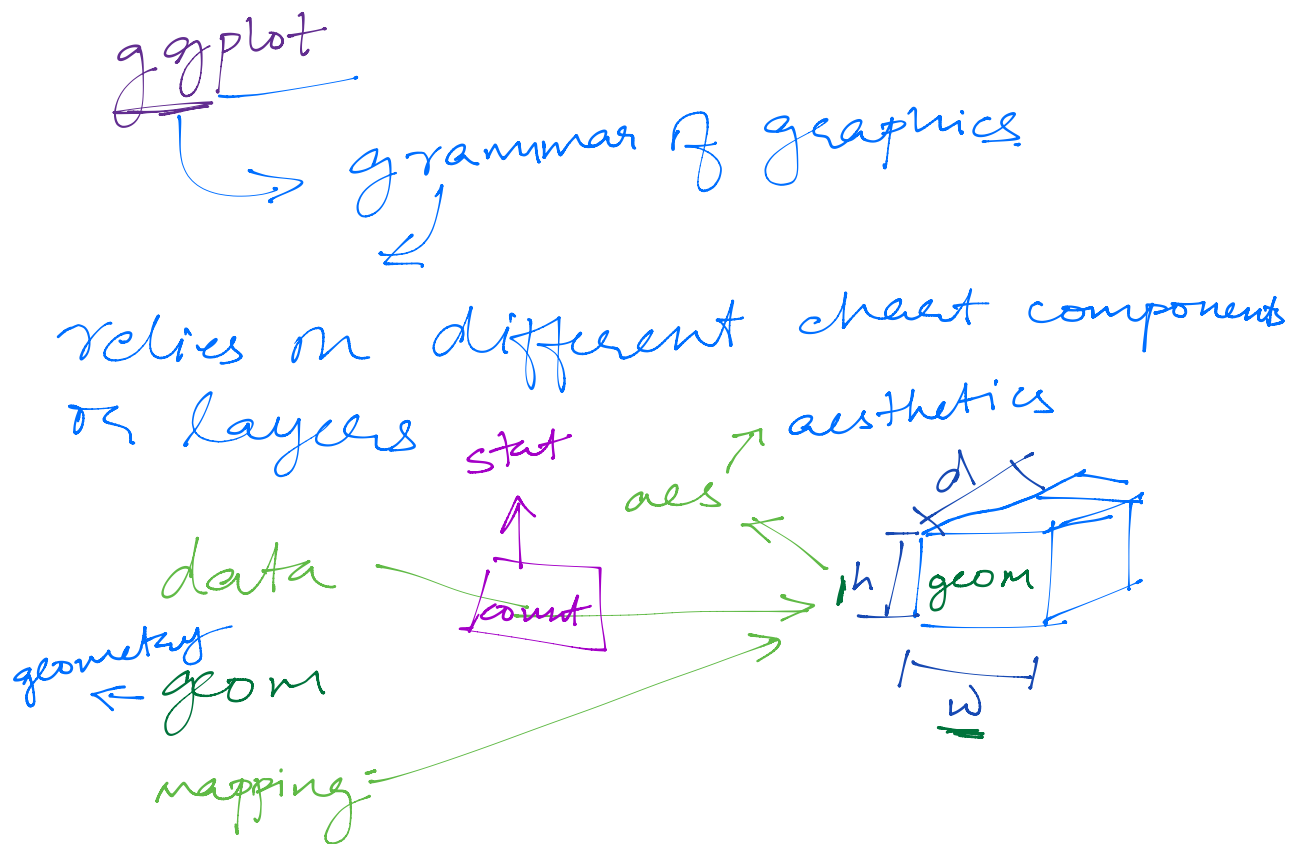 ggplot
grammar of graphics
relies on different chart components
or layers
stat
aesthetics
aes
d
data
count
h
geom
geometry
geom
w
mapping =